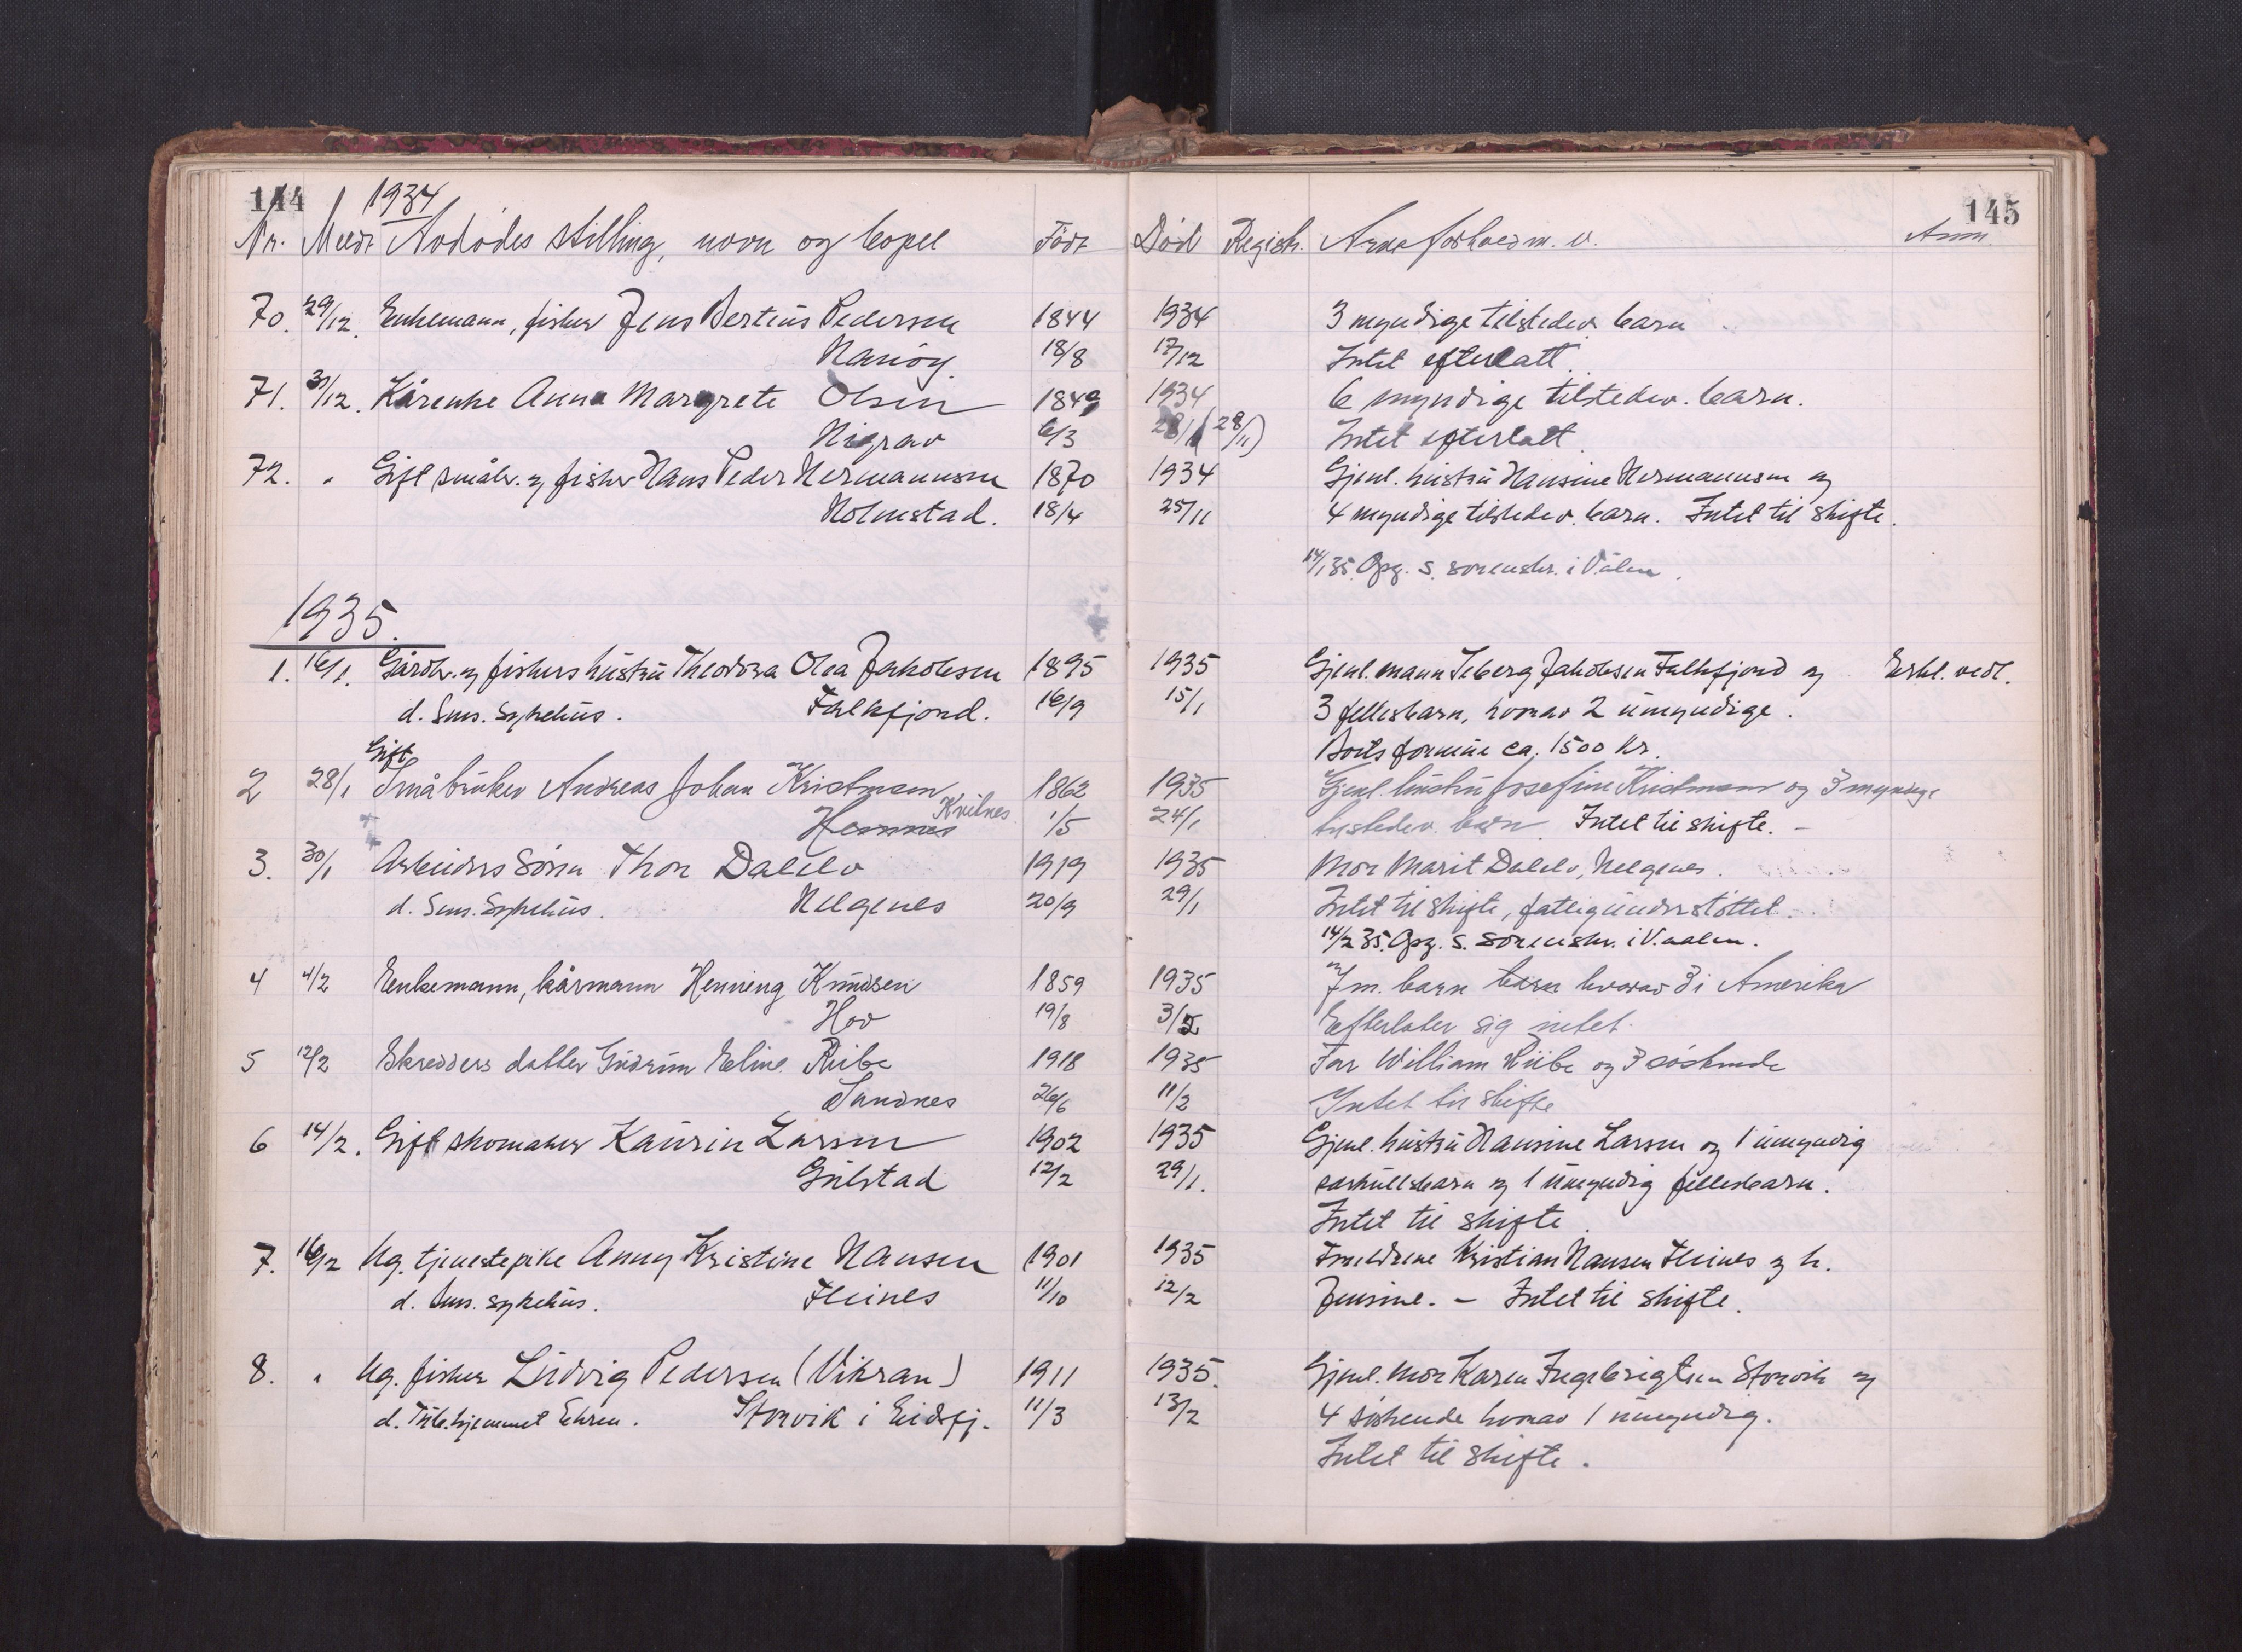 144 1934 145
Nr. Meldt Avdødes stilling, navn og bopel Født Død Registr. Arveforhold m. v. Anm
70. 29/12. Enkemann, fisker Jens Bertius Pedersen 1844 1934 3 myndige tilstedev. barn
Hanøy. 18/8 17/12 Intet efterlatt.
71. 31/12. Kårenke Anna Margrete Olsen 1849 1934 6 myndige tilstedev. barn.
Higrav 6/3 28/11 (28/11) Intet efterlatt.
72. " Gift småbr. og fisker Hans Peder Hermannsen 1870 1934 Gjenl. hustru Hansine Hermannsen og
Holmstad. 18/4 25/11 4 myndige tilstedev. barn. Intet til skifte.
14/1 35. Opg. s. sorenskr. i V.ålen.
1935.
1. 16/1. Gårdbr. og fiskers hustru Theodora Olea Jakobsen 1895 1935 Gjenl. mann Iberg Jakobsen Falkfjord og Erkl. vedl.
d. Sms. Sykehus. Falkfjord. 16/9 15/1 3 fellesbarn, hvorav 2 umyndige.
Boets formue ca. 1500 kr.
Gift
2 28/1 Småbruker Andreas Johan Kristensen 1862 1935 Gjenl. hustru Josefine Kristensen og 3 myndige
Hemnes Kvilnes 1/5 24/1 tilstedev. barn. Intet til skifte. -
3. 30/1 Arbeiders sønn Thor Dalelv 1919 1935 Mor Marit Dalelv, Helgenes.
d. Sms. Sykehus. Helgenes 20/9 29/1 Intet til skifte, fattigunderstøttet.
14/2 35. Opg. s. sorenskr. i V.aalen.
4 4/2 Enkemann, kårmann Henning Knudsen 1859 1935 7 m. barn barn hvorav 3 i Amerika
Hov 19/8 3/2 Efterlater sig intet.
5 12/2 Skredders datter Gudrun Eline Ribe 1918 1935 Far William Ribe og 3 søskende
Sandnes 26/6 11/2 Intet til skifte
6 14/2. Gift skomaker Kaurin Larsen 1902 1935 Gjenl. hustru Hansine Larsen og 1 umyndig
Gulstad 12/2 29/1. særkullsbarn og 1 umyndig fellesbarn.
Intet til skifte.
7. 16/2 Ug. tjenestepike Anny Kristine Hansen 1901 1935 Foreldrene Kristian Hansen Fleines og h.
d. Sms. sykehus. Fleines 11/10 12/2 Jensine. - Intet til skifte.
8. " Ug. fisker Ludvig Pedersen (Vikran) 1911 1935. Gjenl. mor Karen Ingebrigtsen Storvik og
d. Tub.hjemmet Ekren. Storvik i Eidsfj. 11/3 13/2 4 søskende hvorav 1 umyndig.
Intet til skifte.